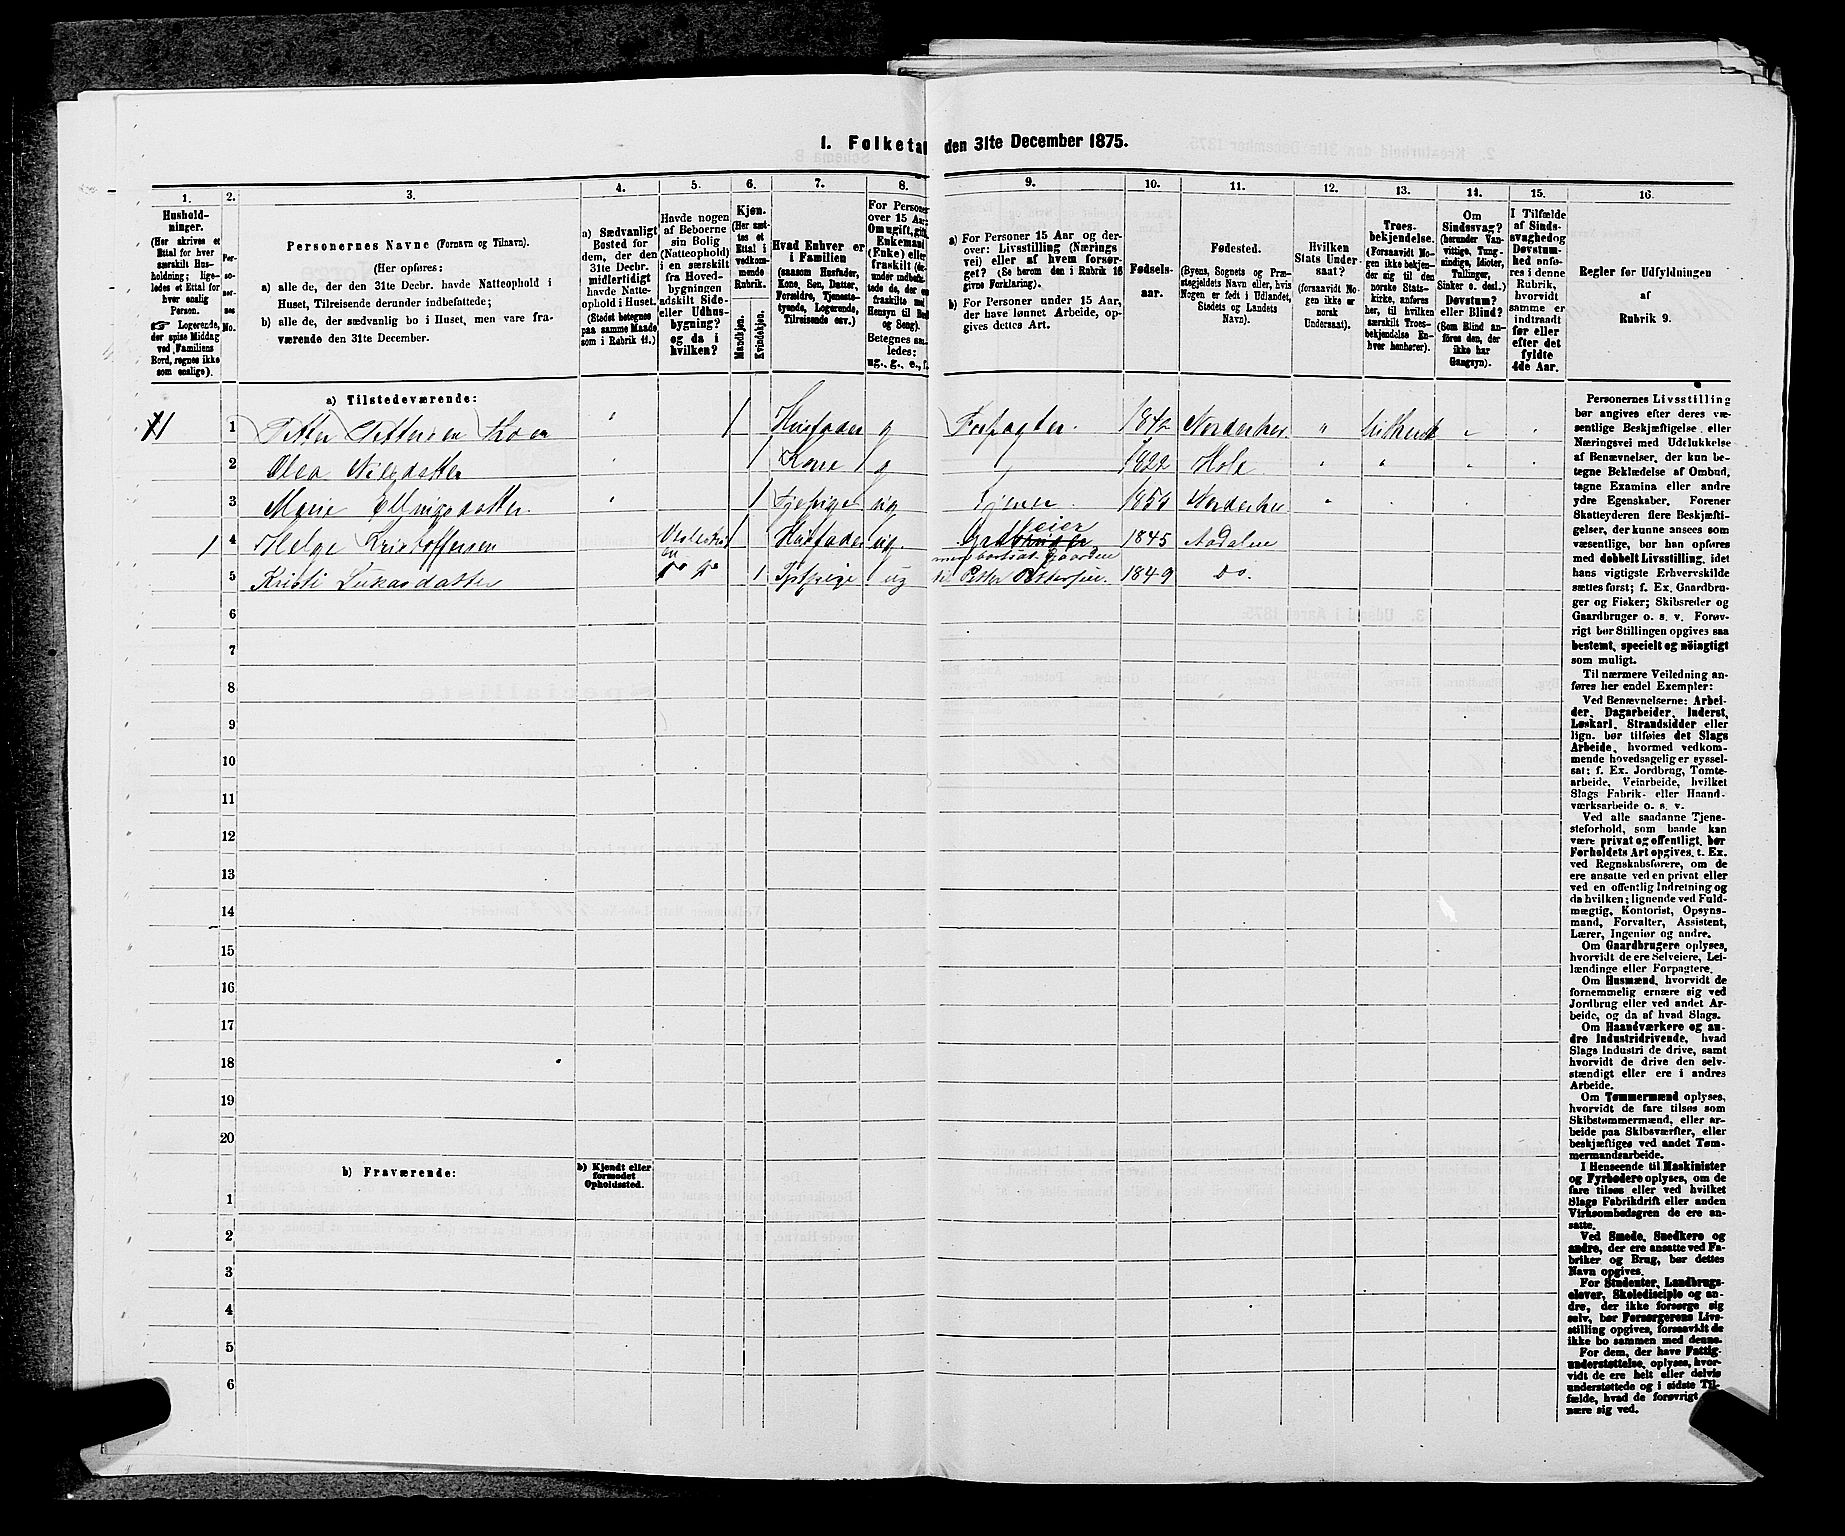 1. Folketa den 31te December 1875.
1. 2. 3. 4. 5. 6. 7. 8. 9. 10. 11. 12. 13. 14. 15. 16.
Hushold-
ninger.
(Her skrives et
Ettal for hver
særskilt Hus-
holdning; lige-
ledes et Ettal for
hver enslig
Person.
☞ Logerende,
der spise Middag
ved Familiens
Bord, regnes ikke
som enslige).
Per-
so-
ner-
nes
No.
Personernes Navne (Fornavn og Tilnavn).
(Her opføres:
a) alle de, der den 31te Decbr. havde Natteophold i
Huset, Tilreisende derunder indbefattede;
b) alle de, der sædvanlig bo i Huset, men vare fra-
værende den 31te December.
a) Sædvanligt
Bosted for
dem, der den
31te Decbr.
midlertidigt
havde Natte-
ophold i Huset.
(Stedet betegnes
paa samme Maade
som i Rubrik 11.)
Havde nogen
af Beboerne
sin Bolig
(Natteophold)
i en særskilt
fra Hoved-
bygningen
adskilt Side-
eller Udhus-
bygning?
og da i
hvilken?
Kjøn.
(Her sæt-
tes et
Ettal i
vedkom-
mende
Rubrik.
Mandkjøn.
Kvindekjøn.
Hvad Enhver er
i Familien
(saasom Husfader,
Kone, Søn, Datter,
Forældre, Tjeneste-
tyende, Logerende,
Tilreisende osv.)
For Personer
over 15 Aar:
Om ugift, gift,
Enkemand
(Enke) eller
fraskilt
Hensyn til Bord
og Seng).
Betegnes saa-
ledes:
ug., g., e., f.
a) For Personer 15 Aar og der-
over: Livsstilling (Nærings
vei) eller af hvem forsør-
get? (Se herom den i Rubrik 16
givne Forklaring).
b) For Personer under 15 Aar,
der have lønnet Arbeide, op-
gives dettes Art.
Fødsels-
aar.
Fødested.
(Byens, Sognets og Præ-
stegjeldets Navn eller, hvis
Nogen er født i Udlandet,
Stedets og Landets
Navn).
Hvilken
Stats Under-
saat?
(forsaavidt No-
gen ikke er
norsk
Undersaat).
Troes-
bekjendelse.
(Forsaavidt No-
gen ikke bekjen-
der sig til den
norske Stats-
kirke, anføres
her, til hvilken
særskilt Troes-
bekjendelse En-
hver henhører).
Om
Sindssvag?
(herunder Van-
vittige, Tung-
sindige, Idioter,
Tullinger,
Sinker o. desl.)
Døvstum?
eller Blind?
(Som Blind an-
føres den, der
ikke har
Gangsyn).
I Tilfælde
af Sinds-
svaghed og
Døvstum-
hed anfø-
res i denne
Rubrik,
hvorvidt
samme er
indtraadt
før eller
efter det
fyldte
4de Aar.
Regler for Udfyldningen
af
Rubrik 9.
a) Tilstedeværende:
1 1 Petter Pettersen Koen 1 Husfader g Forpagter 1842 Norderhov
2 Olea Nilsdatter 1 Kone g 1822 Hole
3 Marie Ellingsdatter 1 Tjepige ug Tjener 1850 Norderhov
1 4 Helge Kristoffersen 1 Husfader ug. Grdbruger eier 1845 Aadalen
men bortsat Gaarden
5 Kristi Lukasdatter Do Do 1 Tjstpige ug til Petter Pettersen. 1849 Do.
6
7
8
9
10
11
12
13
14
15
16
17
18
19
20
b) Fraværende:
b) Kjendt eller
formodet
Opholdssted.
1
2
3
4
5
6
Personernes Livsstilling
bør angives efter deres væ-
sentlige Beskjæftigelse eller
Næringsvei med Udelukkelse
af Benævnelser, der kun be-
tegne Beklædelse af Ombud,
tagne Examina eller andre
ydre Egenskaber. Forener
Skatteyderen flere Beskjæfti-
gelser, der kunne ansees som
væsentlige, bør han opføres
med dobbelt Livsstilling, idet
hans vigtigste Erhvervskilde
sættes først; f. Ex. Gaardbru-
ger og Fisker; Skibsreder og
Gaardbruger o. s. v. Forøv-
rigt bør Stillingen opgives saa
bestemt, specielt og nöiagtigt
som muligt.
Til nærmere Veiledning an-
føres her endel Exempler:
Ved Benævnelserne: Arbei-
der, Dagarbeider, Inderst,
Løskarl, Strandsidder eller
lign. bør tilføies det Slags
Arbeide, hvormed vedkom-
mende hovedsagelig er syssel-
sat; f. Ex. Jordbrug, Tomte-
arbeide, Veiarbeide, hvilket
Slags Fabrik- eller Haand-
værksarbeide o. s. v.
Ved alle saadanne Tjene-
steforhold, som baade kan
være privat og offentligt, bør
Forholdets Art opgives, t. Ex.
ved Regnskabsførere, om de
ere ansatte ved en privat eller
ved en offentlig Indretning og
da hvilken; lignende ved Fuld-
mægtig, Kontorist, Opsyns-
mand, Forvalter, Assistent,
Lærer, Ingeniør og andre.
Om Gaardbrugere oplyses,
hvorvidt de ere Selveiere, Lei-
lændinge eller Forpagtere.
Om Husmænd, hvorvidt de
fornemmelig ernære sig ved
Jordbrug eller ved andet Ar-
beide, og da af hvad Slags.
Om Haandværkere og an-
dre Industridrivende, hvad
Slags Industri de drive, samt
hvorvidt de drive den selv-
stændigt eller ere i andres
Arbeide.
Om Tømmermænd oplyses,
hvorvidt de fare tilsøs som
Skibstømmermænd, eller ar-
beide paa Skibsværfter, eller
beskjæftiges ved andet Tøm-
mermandsarbeide.
I Henseende til Maskinister
og Fyrbødere oplyses, om de
fare tilsøs eller ved hvilket
Slags Fabrikdrift eller anden
Virksomhedsgren de ere an-
satte.
Ved Smede, Snedkere og
andre, der ere ansatte ved Fa-
briker og Brug, bør dettes
Navn opgives.
For Studenter, Landbrugs-
elever, Skoledisciple og an-
dre, der ikke forsørge sig
selv, bør Forsørgerens Livs-
stilling opgives, forsaavidt de
ikke bo sammen med denne.
For dem, der have Fattig-
understøttelse, oplyses, hvor-
vidt de ere helt eller delvis
understøttede og i sidste Til-
fælde, hvad de forøvrigt er-
nære sig ved.